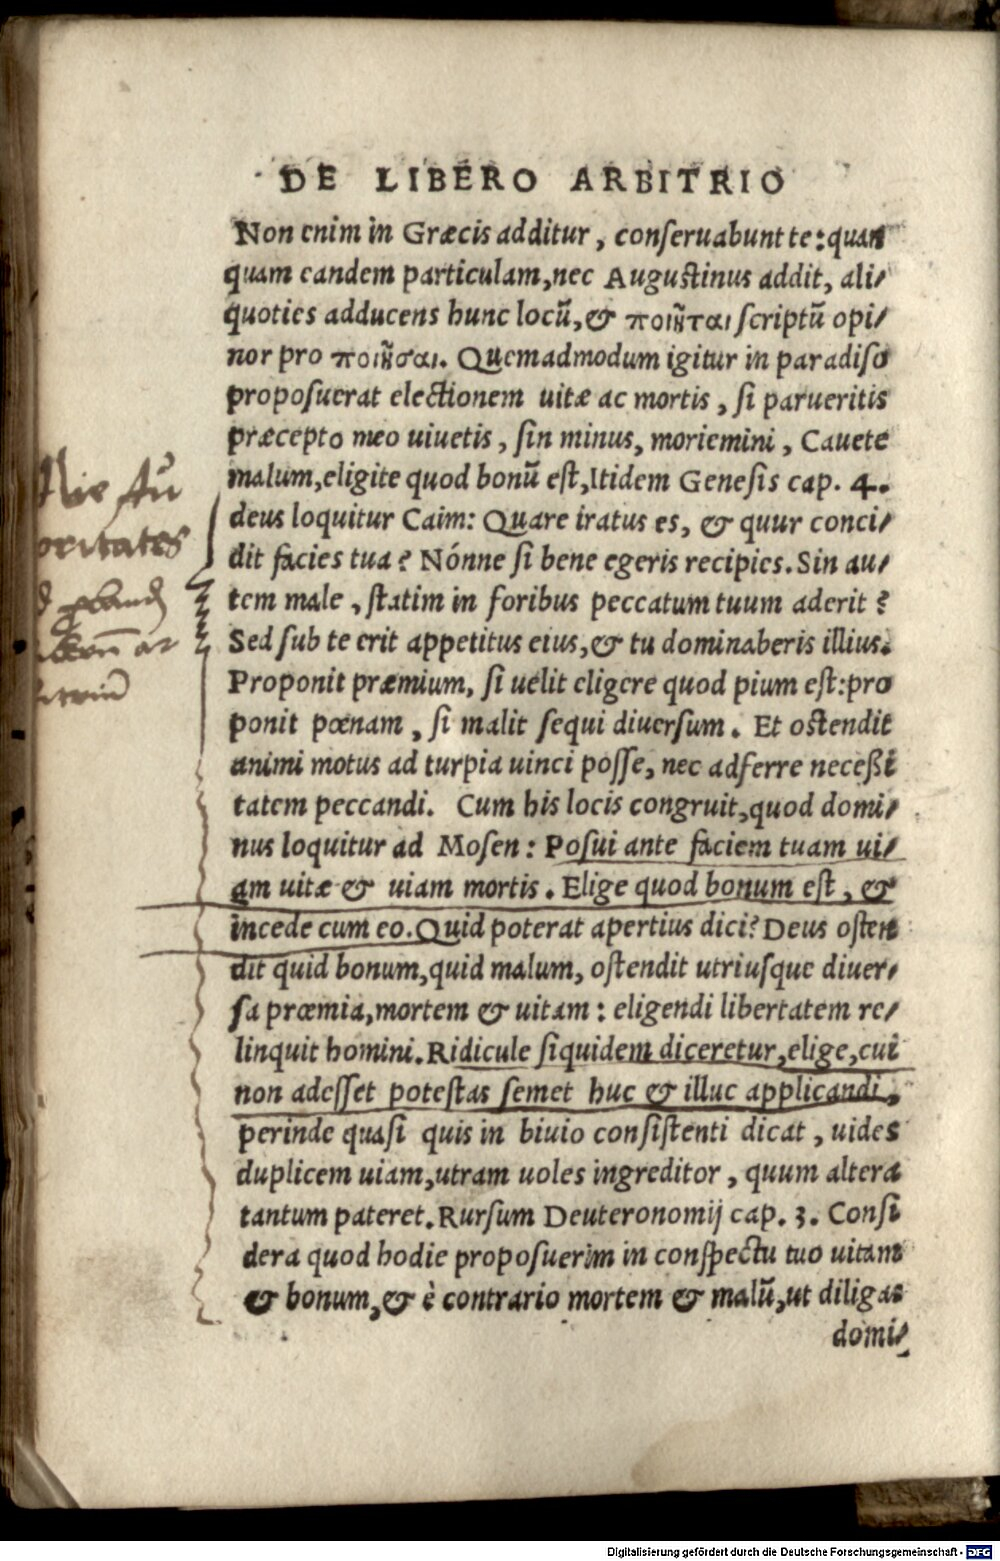 DE LIBERO ARBITRIO
Non enim in Græcis additur, conſeruabunt te: quan
quam eandem particulam, nec Auguſtinus addit, ali/
quoties adducens hunc locū, & ποιῆται ſcriptū opi/
nor pro ποιῆσαι. Quemadmodum igitur in paradiſo
propoſuerat electionem uitæ ac mortis, ſi parueritis
præcepto meo uiuetis, ſin minus, moriemini, Cauete
malum, eligite quod bonū eſt, Itidem Geneſis cap. 4.
deus loquitur Caim: Quare iratus es, & quur conci/
dit facies tua? Nónne ſi bene egeris recipies. Sin au/
tem male, ſtatim in foribus peccatum tuum aderit?
Sed ſub te erit appetitus eius, & tu dominaberis illius.
Proponit præmium, ſi uelit eligere quod pium eſt: pro
ponit pœnam, ſi malit ſequi diuerſum. Et oſtendit
animi motus ad turpia uinci poſſe, nec adferre neceßi
tatem peccandi. Cum his locis congruit, quod domi/
nus loquitur ad Moſen: Poſui ante faciem tuam ui/
am uitæ & uiam mortis. Elige quod bonum eſt, &
incede cum eo. Quid poterat apertius dici? Deus oſten
dit quid bonum, quid malum, oſtendit utriuſque diuer/
ſa præmia, mortem & uitam: eligendi libertatem re/
linquit homini. Ridicule ſiquidem diceretur, elige, cui
non adeſſet poteſtas ſemet huc & illuc applicandi,
perinde quaſi quis in biuio conſiſtenti dicat, uides
duplicem uiam, utram uoles ingreditor, quum altera
tantum pateret. Rurſum Deuteronomij cap. 3. Conſi
dera quod hodie propoſuerim in conſpectu tuo uitam
& bonum, & è contrario mortem & malū, ut diligas
domi/
oritates
Digitalisierung gefördert durch die Deutsche Forschungsgemeinschaft - DFG